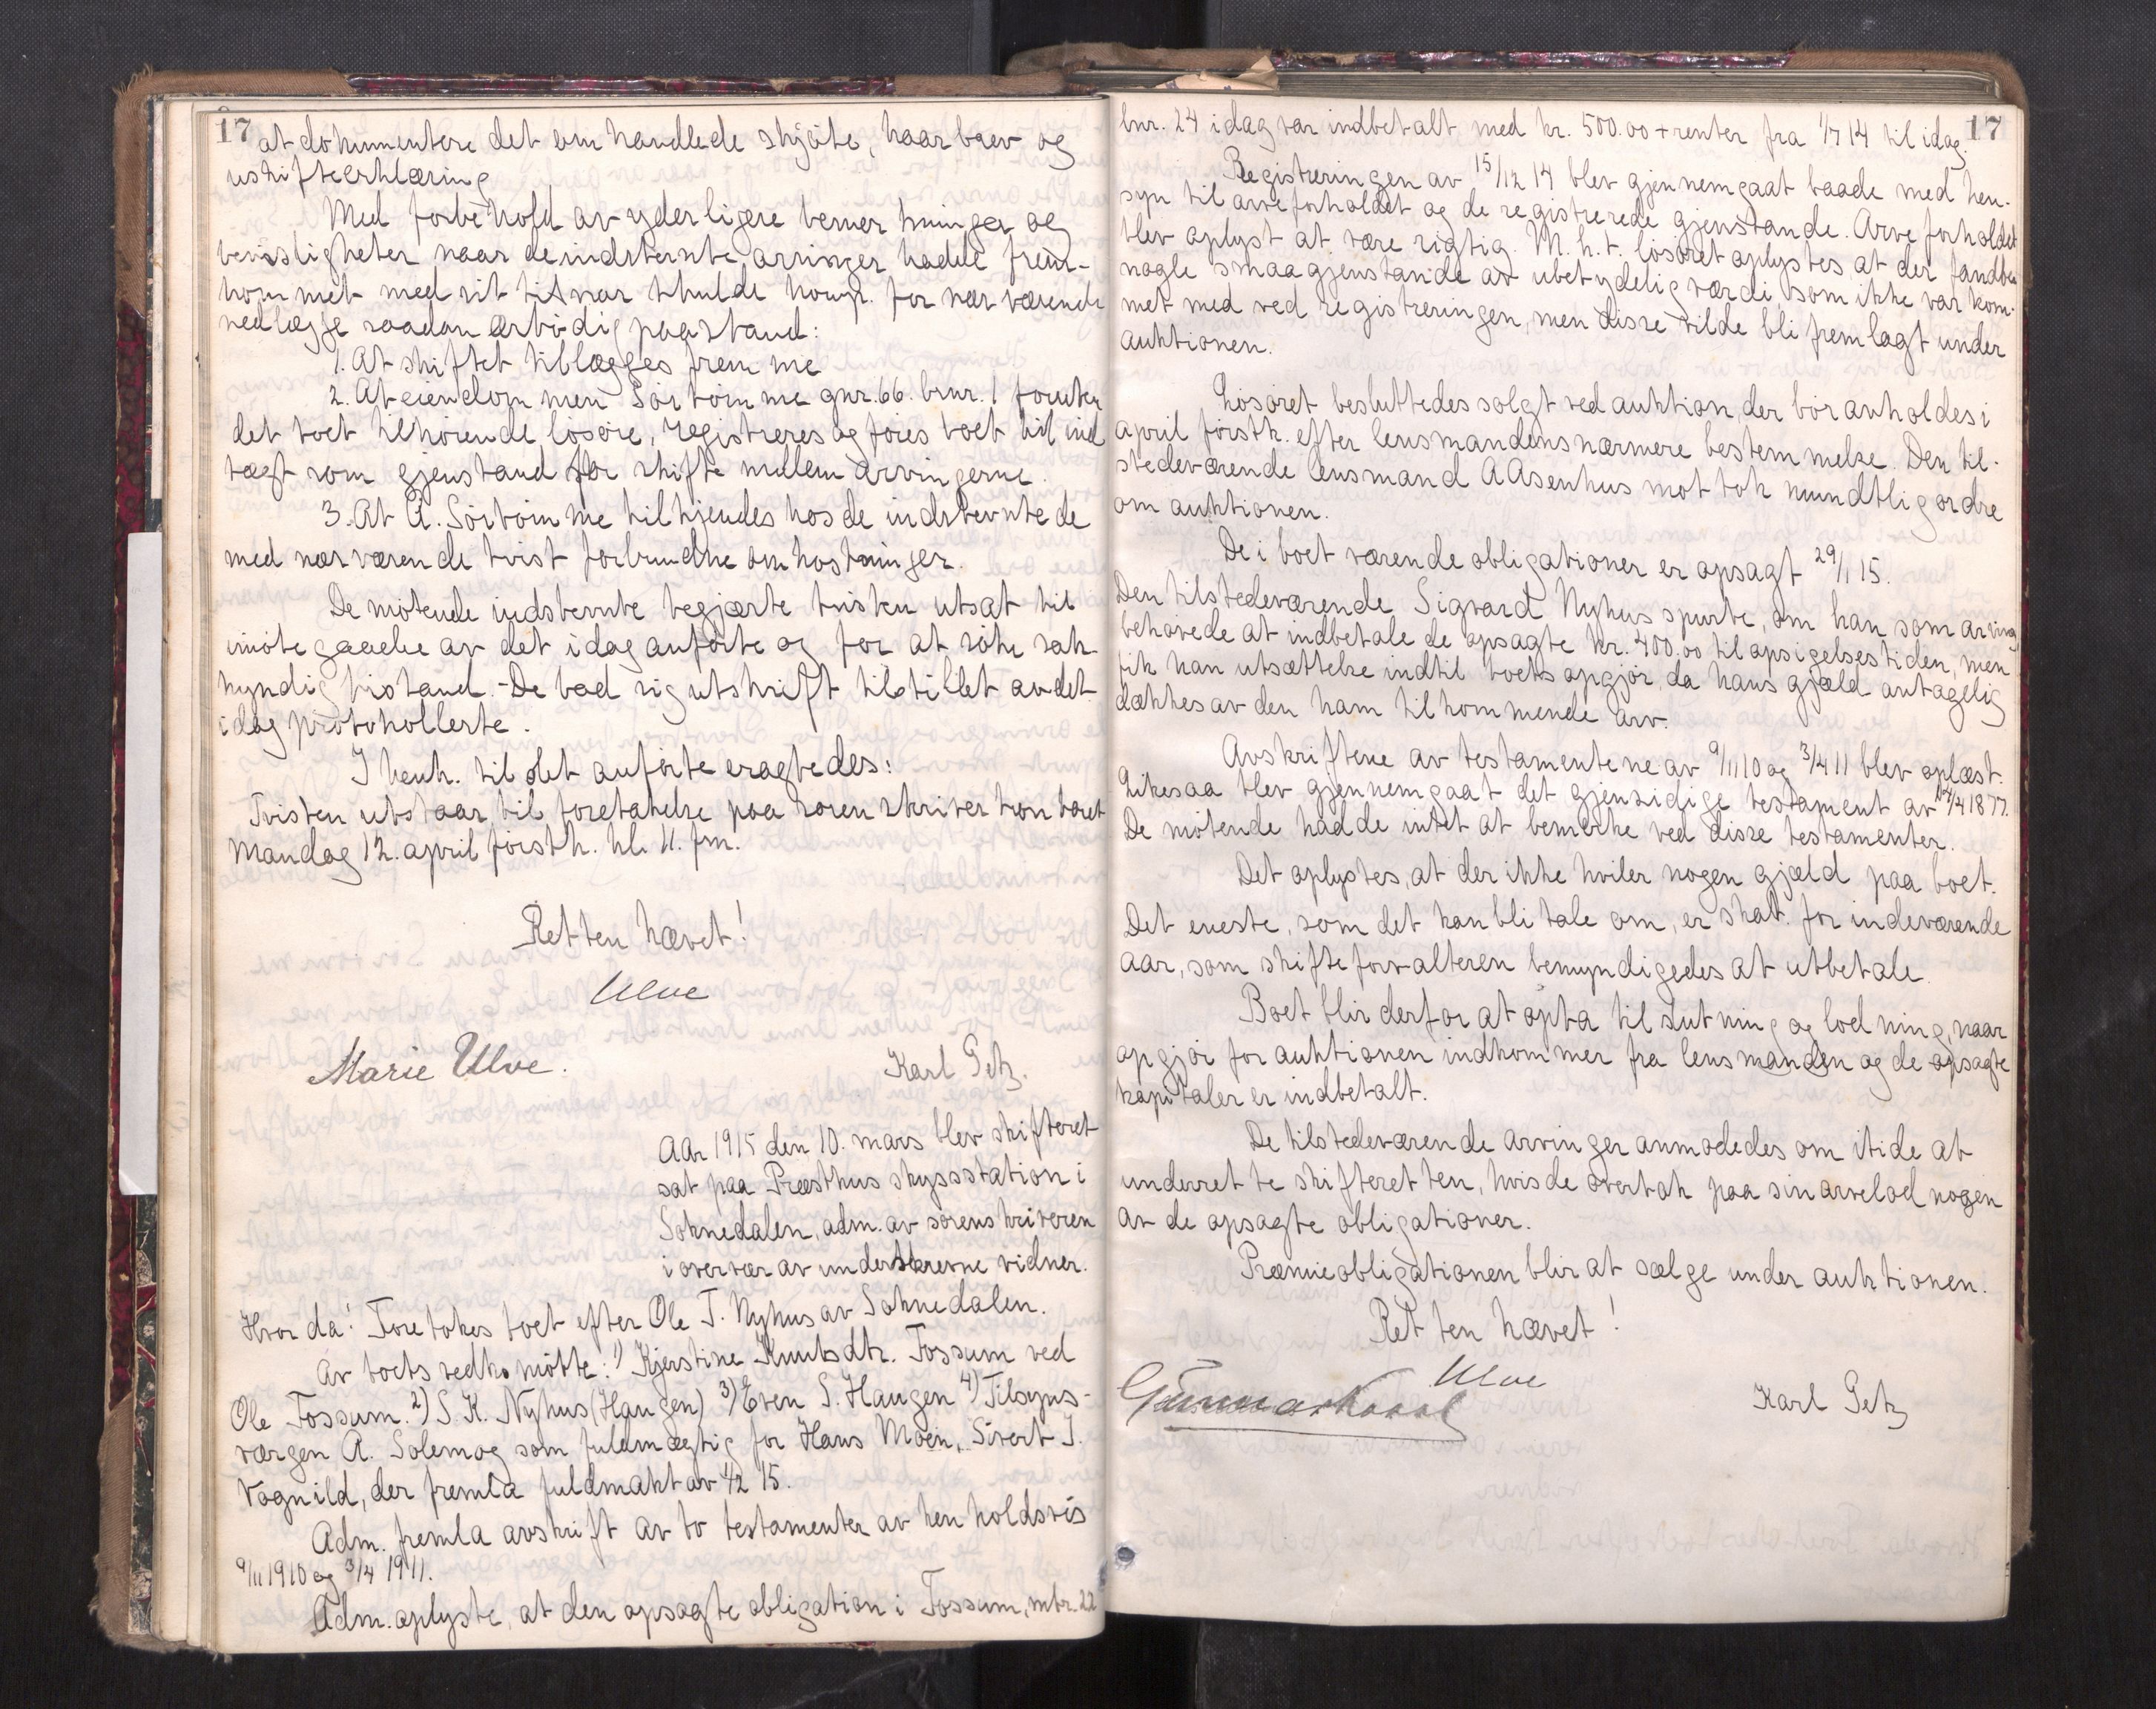 17
at dokumentere det omhandlede skjøte, kaarbrev og
uskifteerklæring
Med forbehold av yderligere bemerkninger og
bevisligheter naar de indstevnte arvinger hadde frem-
kommet med sit tilsvar skulde komp. for nærværende
nedlægge saadan ærbødig paastand:
1. At skiftet tilægges fremme
2. At eiendommen Sørtømme gnr. 66. brnr. 1 foruten
det boet tilhørende løsøre, registreres og føies boet til ind
tægt som gjenstand for skifte mellem arvingerne.
3. At A. Sørtømme tilkjendes hos de indstevnte de
med nærværende tvist forbundne omkostninger.
De møtende indstevnte begjærte tvisten utsat til
imøtegaaelse av det idag anførte og for at søke sak-
kyndig bistand. - De bad sig utskrift tilstillet av det
idag protokollerte.
I henh. til det anførte eragtedes:
Tvisten utstaar til foretakelse paa sorenskriverkontoret
Mandag 12. april førstk. kl. 11. fm.
Retten hævet!
Ulve
Marie Ulve. Karl Getz.
Aar 1915 den 10. mars blev skifteret
sat paa Præsthus skysstation i
Soknedalen, adm. av sorenskriveren
i overvær av underskrevne vidner.
Hvorda: Foretokes boet efter Ole T. Nyhus av Soknedalen.
Av boets vedk. møtte: 1) Kjerstine Knutsdtr. Fossum ved
Ole Fossum. 2) S. K. Nyhus (Haugen) 3) Even S. Haugen 4) Tilsyns-
værgen A. Solem og som fuldmægtig for Hans Moen, Sivert J.
Vognild, der fremla fuldmakt av 1/2 15.
Adm. fremla avskrift av to testamenter av henholdsvis
9/11 1910 og 3/4 1911.
Adm. oplyste, at den opsagte obligation i Fossum, mtr. 22
17
bnr. 24 idag var indbetalt med kr. 500.00 + renter fra 1/7 14 til idag.
Registreringen av 15/12 14 blev gjennemgaat baade med hen-
syn til arveforholdet og de registrerede gjenstande. Arveforholdet
blev oplyst at være rigtig. M. h. t. løsøret oplystes at der fandtes
nogle smaagjenstande av ubetydelig værdi som ikke var kom-
met med ved registreringen, men disse vilde bli fremlagt under
auktionen.
Løsøret besluttedes solgt ved auktion, der bør avholdes i
april førstk. efter lensmandens nærmere bestemmelse. Den til-
stedeværende lensmand A Asenhus mottok mundtlig ordre
om auktionen.
De i boet værende obligationer er opsagt 29/1 15.
Den tilstedeværende Sigvard Nyhus spurte, om han som arving
behøvede at indbetale de opsagte kr. 400.00 til opsigelsestiden, men
fik han utsættelse indtil boets opgjør, da hans gjæld antagelig
dækkes av den ham tilkommende arv.
Avskriftene av testamentene av 9/11 10 og 3/4 11 blev oplæst.
Likesaa blev gjennemgaat det gjensidige testament av 12/4 1877.
De møtende hadde intet at bemerke ved disse testamenter.
Det oplystes, at der ikke hviler nogen gjæld paa boet.
Det eneste, som det kan bli tale om, er skat for indeværende
aar, som skifteforvalteren bemyndigedes at utbetale.
Boet blir derfor at opta til slutning og lodning, naar
opgjør for auktionen indkommer fra lensmanden og de opsagte
kapitaler er indbetalt.
De tilstedeværende arvinger anmodedes om itide at
underrette skifteretten, hvis de overtok paa sin arvelod nogen
av de opsagte obligationer.
Præmieobligationen blir at sælge under auktionen.
Retten hævet!
Ulve
Karl Getz